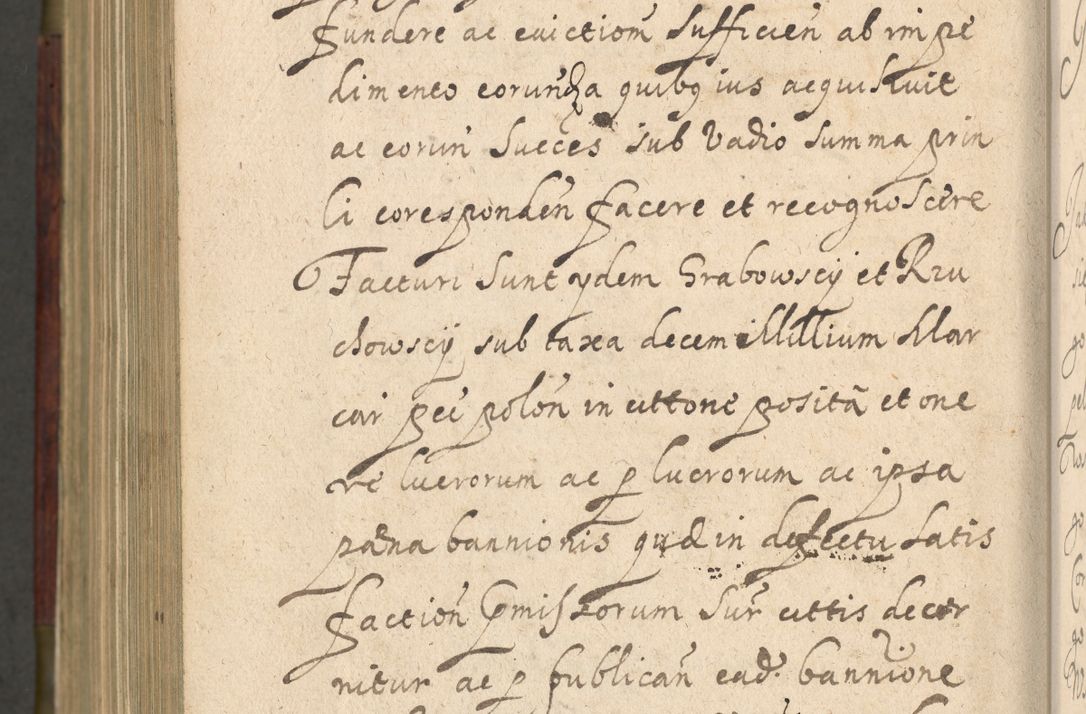 fundere ac euictioñ sufficieñ ab impe
dimento eorundꝫ a quibꝫ ius acquisiuit
ac eorun̄ Succes̄ sub Vadio summa prin
li coresponden̄ facere et recognoscere
Facturi sunt ydem Grabowscÿ et Rzu
chowscÿ sub taxa decem Millium Mar
car pec̄ polon̄ in cttone positā et one
re lucrorum ac p lucrorum ac ipsa
pæna bannionis quæ in defectu Satis
faction̄ Pmissorum Sur̄ cttis decer
nitur ac p publican̄ ead: bannione